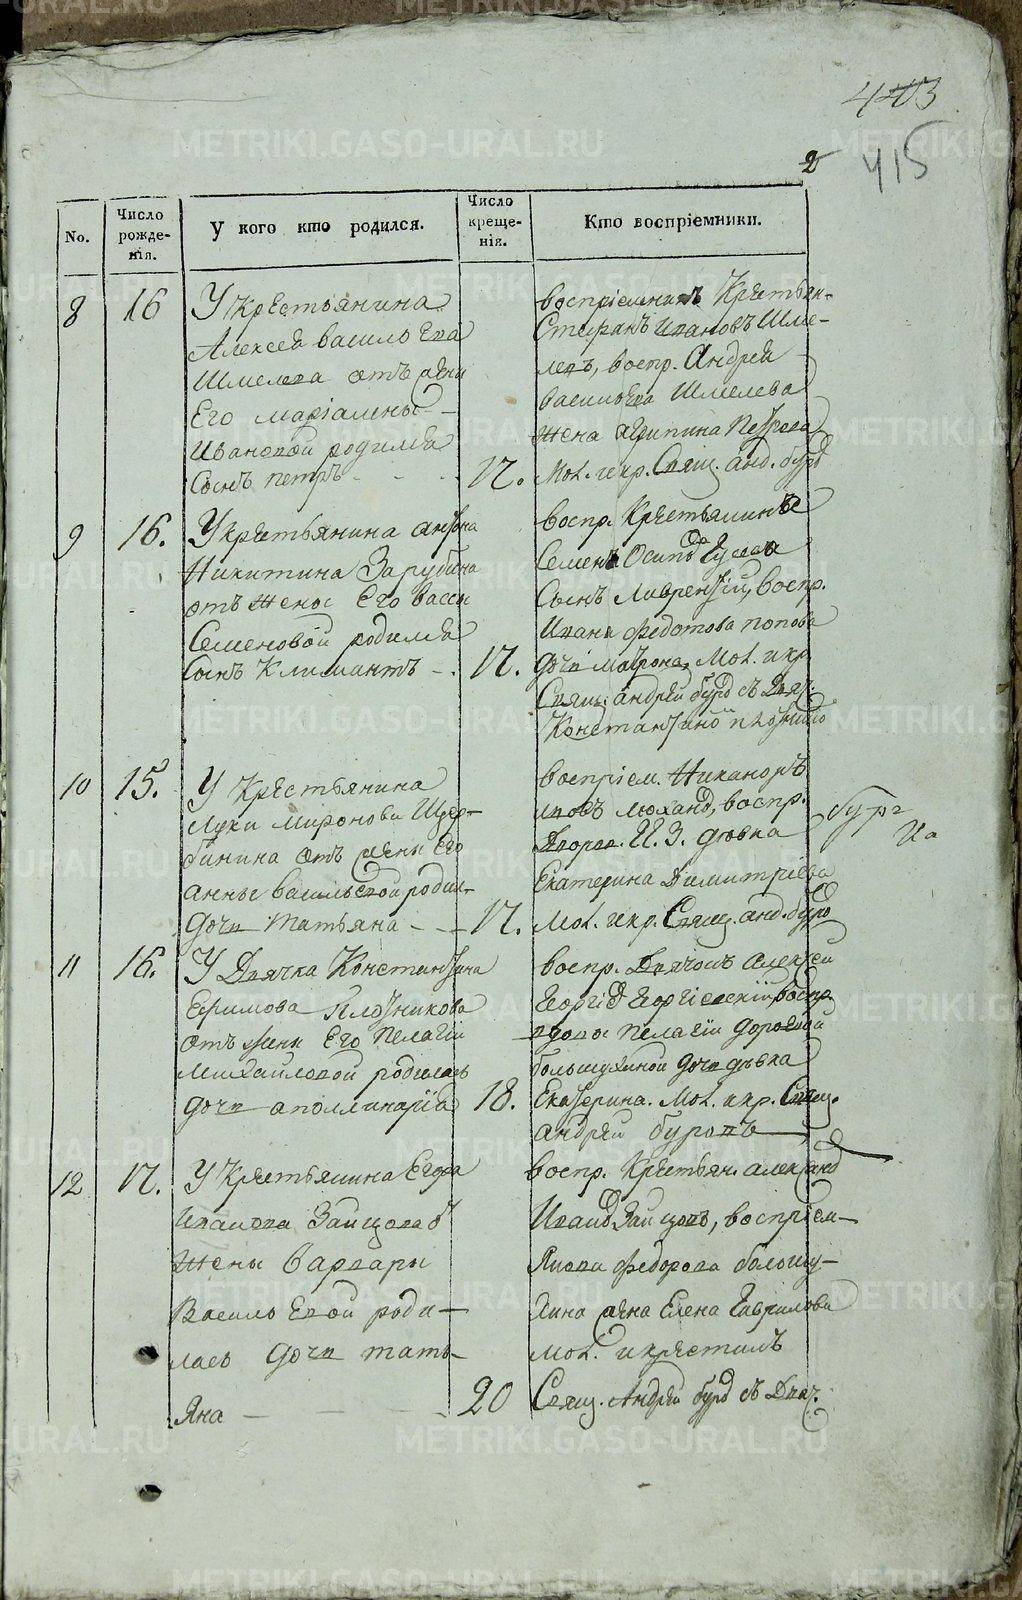 443
415
2
No.
Число рожде-нія.
У кого кто родился.
Число креще-нія.
Кто воспріемники.
8
16
У крестьянина
Алексея василь Ева
Шмелева отъ жены
Его маріамены
Ивановой родился
Сынъ петръ
17.
воспріемникъ Крестьян-
Стефанъ ивановъ Шме-
левъ, воспр. Андрея
васильева Шмелева
жена агрипина Петрова
Мол. и кр. Свящ. анд. буровъ
9
16.
У крестьянина антона
Никитина Зарубина
отъ жены Его вассы
Семеновой родился
Сынъ Климантъ
17.
воспр. Крестьянинъ
Семена Осипова Гусева
Сынъ Лаврентій, воспр.
Ивана федотова попова
дочь матрона, Мол. и кр.
Свящ. андрей буровъ съ Дьяч.
Константиномъ плотнико
10
15.
У Крестьянина
Луки миронова Щер-
бинина отъ жены Его
анны васильевой родил-
дочь татьяна
17.
воспріем. Никаноръ
воспр.
Дворов. И. З. девка
Екатерина Димитріева
Мол. и кр. Свящ. анд. буровъ
11
16.
У Дьячка Константина
Ефимова плотникова
отъ жены Его пелагіи
Михайловой родилась
дочь аполлинарія
18.
воспр. Дьячокъ алексей
Георгіевъ Георгіевскій, воспр.
вдовы пелагіи дорофеевой
большухиной дочь девка
Екатерина. Мол. и кр. Свящ.
андрей буровъ
12
17.
У Крестьянина Егора
Иванова Зайцова отъ
жены варвары
василь Евой роди-
лась дочь тать-
яна
20
воспр. Крестьян. александ
Ивановъ Зайцовъ, воспріем-
Якова федорова больш-
хина жена Елена Гаврилова
мол. и крестилъ
Свящ. Андрей буровъ съ Дьяч.
METRIKI.GASO-URAL.RU